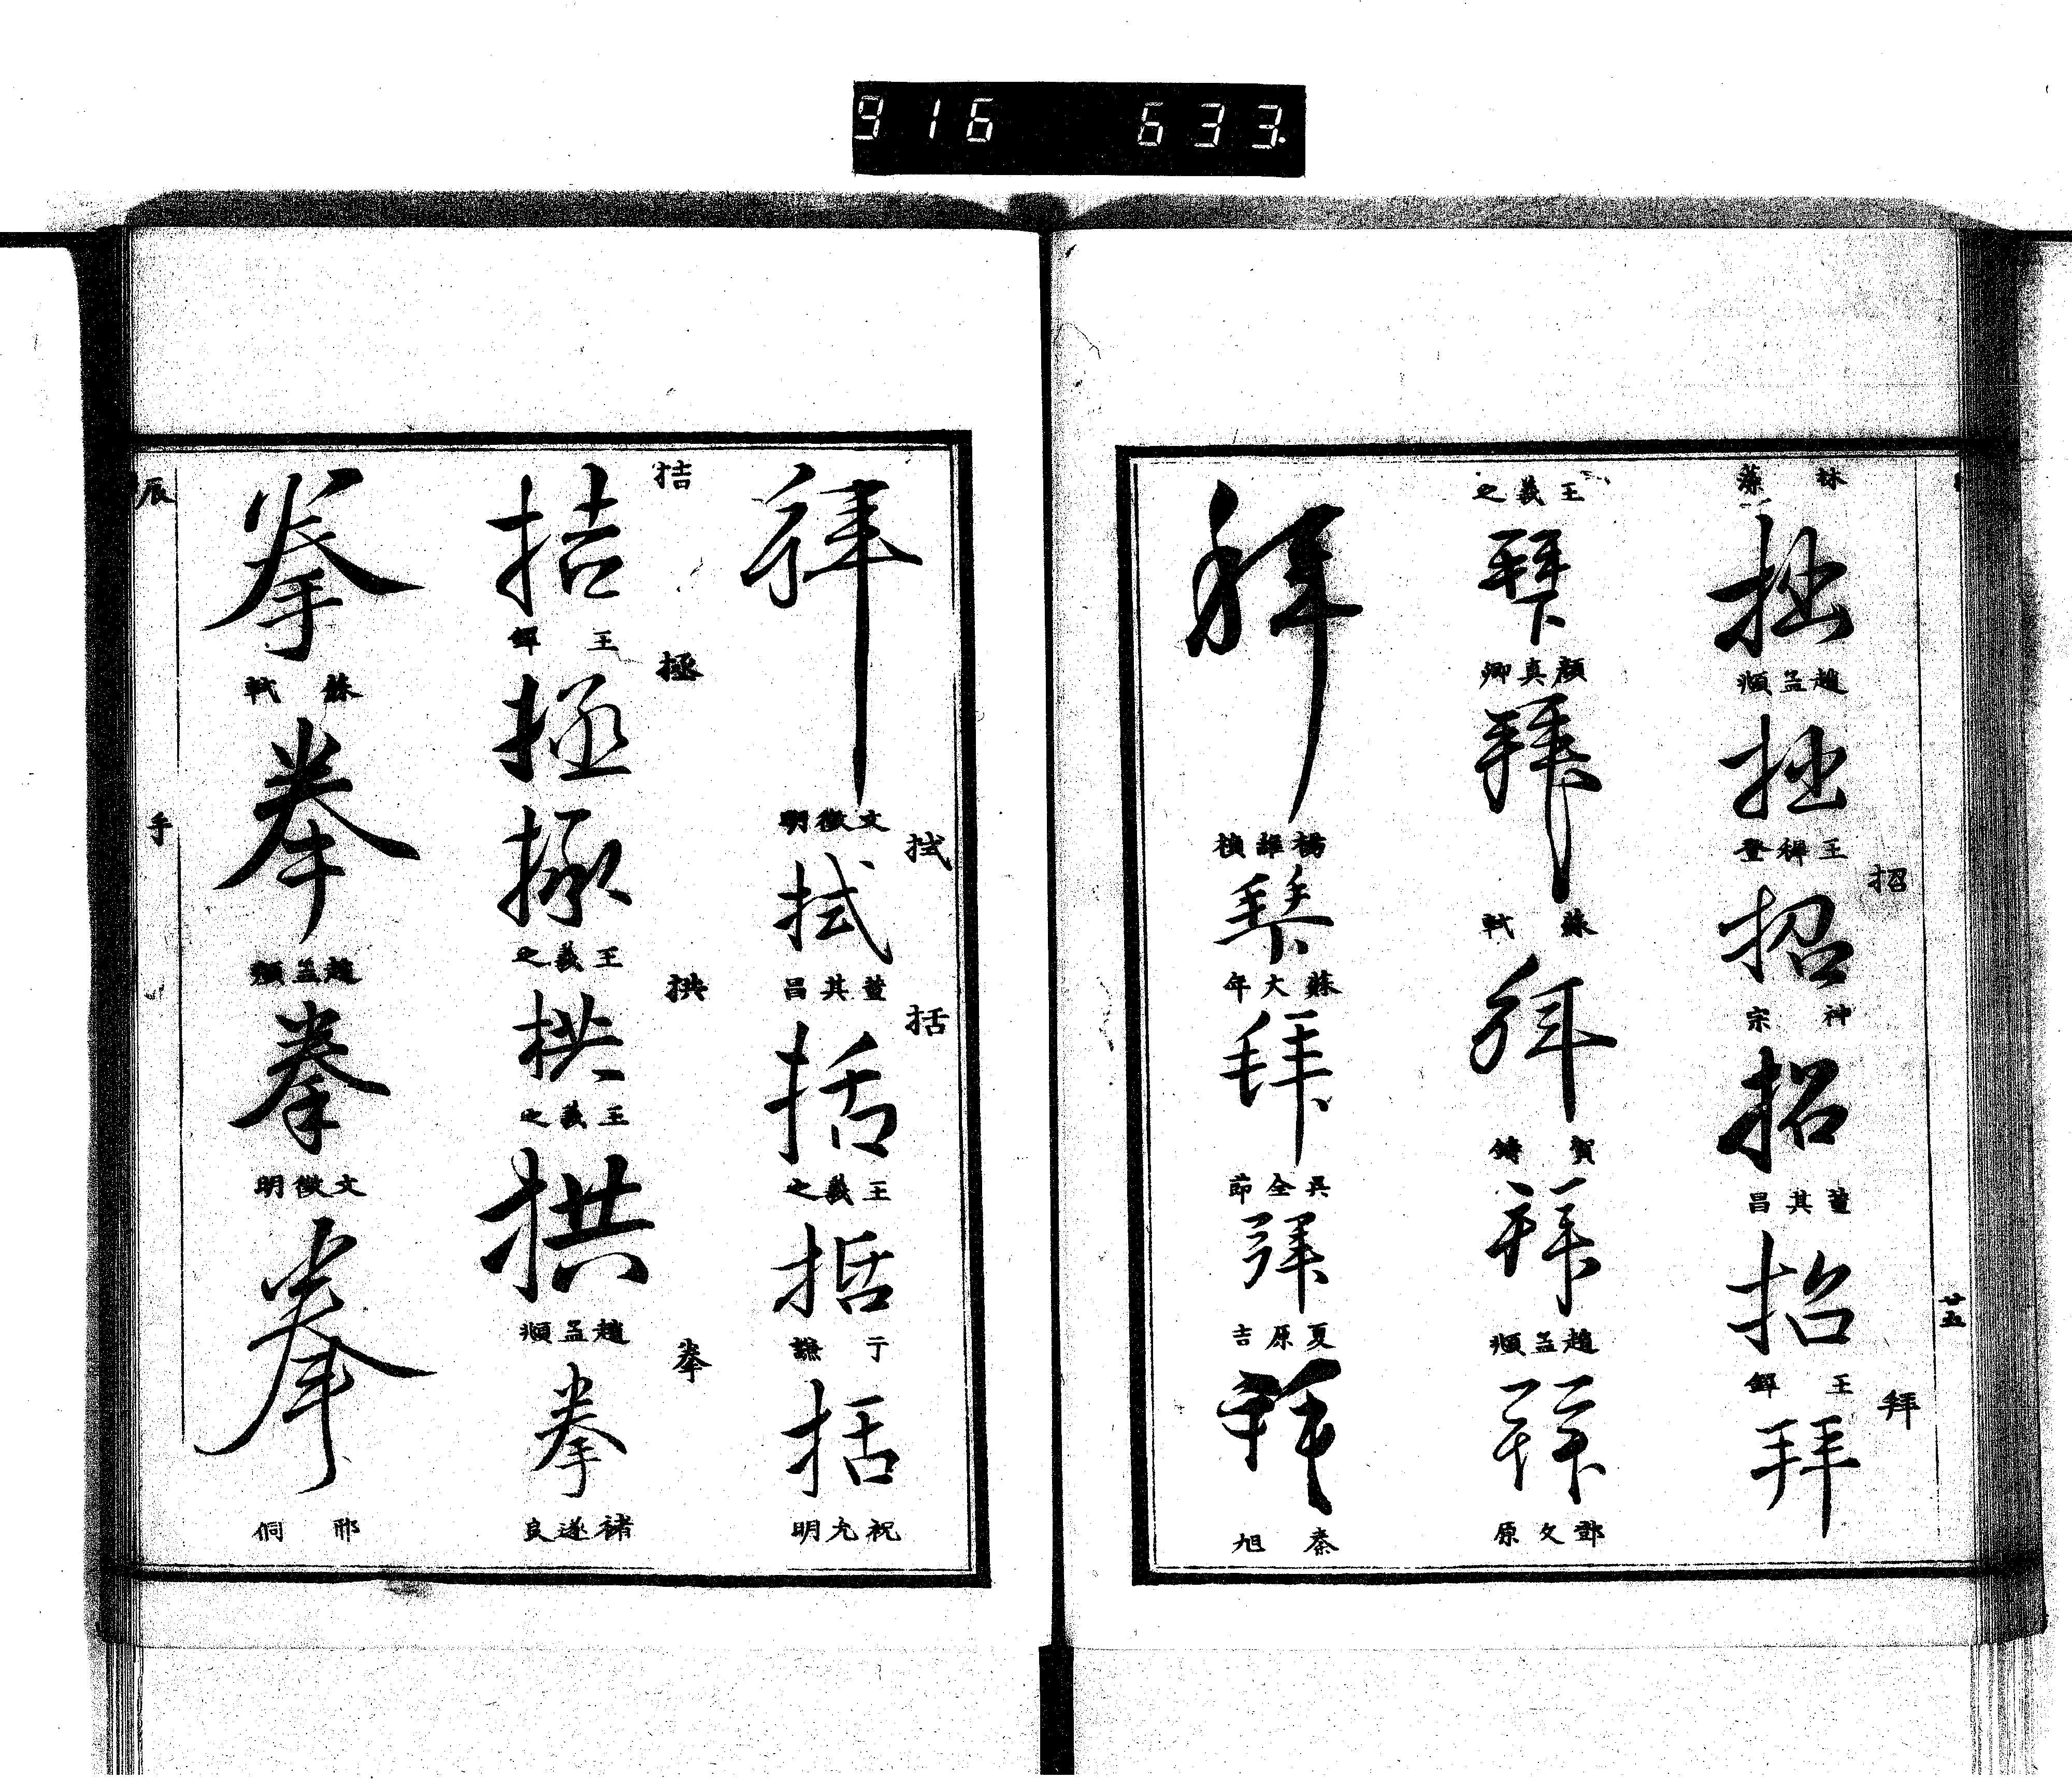 916 633
林藻
拙
趙孟頫
拙
王穉登
招
招
神宗
招
董其昌
招
王鐸
拜
拜
廿五
王羲之
拜
顏真卿
拜
蘇軾
拜
賀鑄
拜
趙孟頫
拜
鄧文原
拜
楊維楨
拜
蘇大年
拜
吳全節
拜
夏原吉
拜
秦旭
拜
文徵明
拭
拭
董其昌
括
括
王羲之
括
于謙
括
祝允明
拮
拮
王鐸
拯
拯
拯
王羲之
拱
拱
王羲之
拱
趙孟頫
拳
拳
褚遂良
拳
蘇軾
拳
趙孟頫
拳
文徵明
拳
邢侗
辰
手